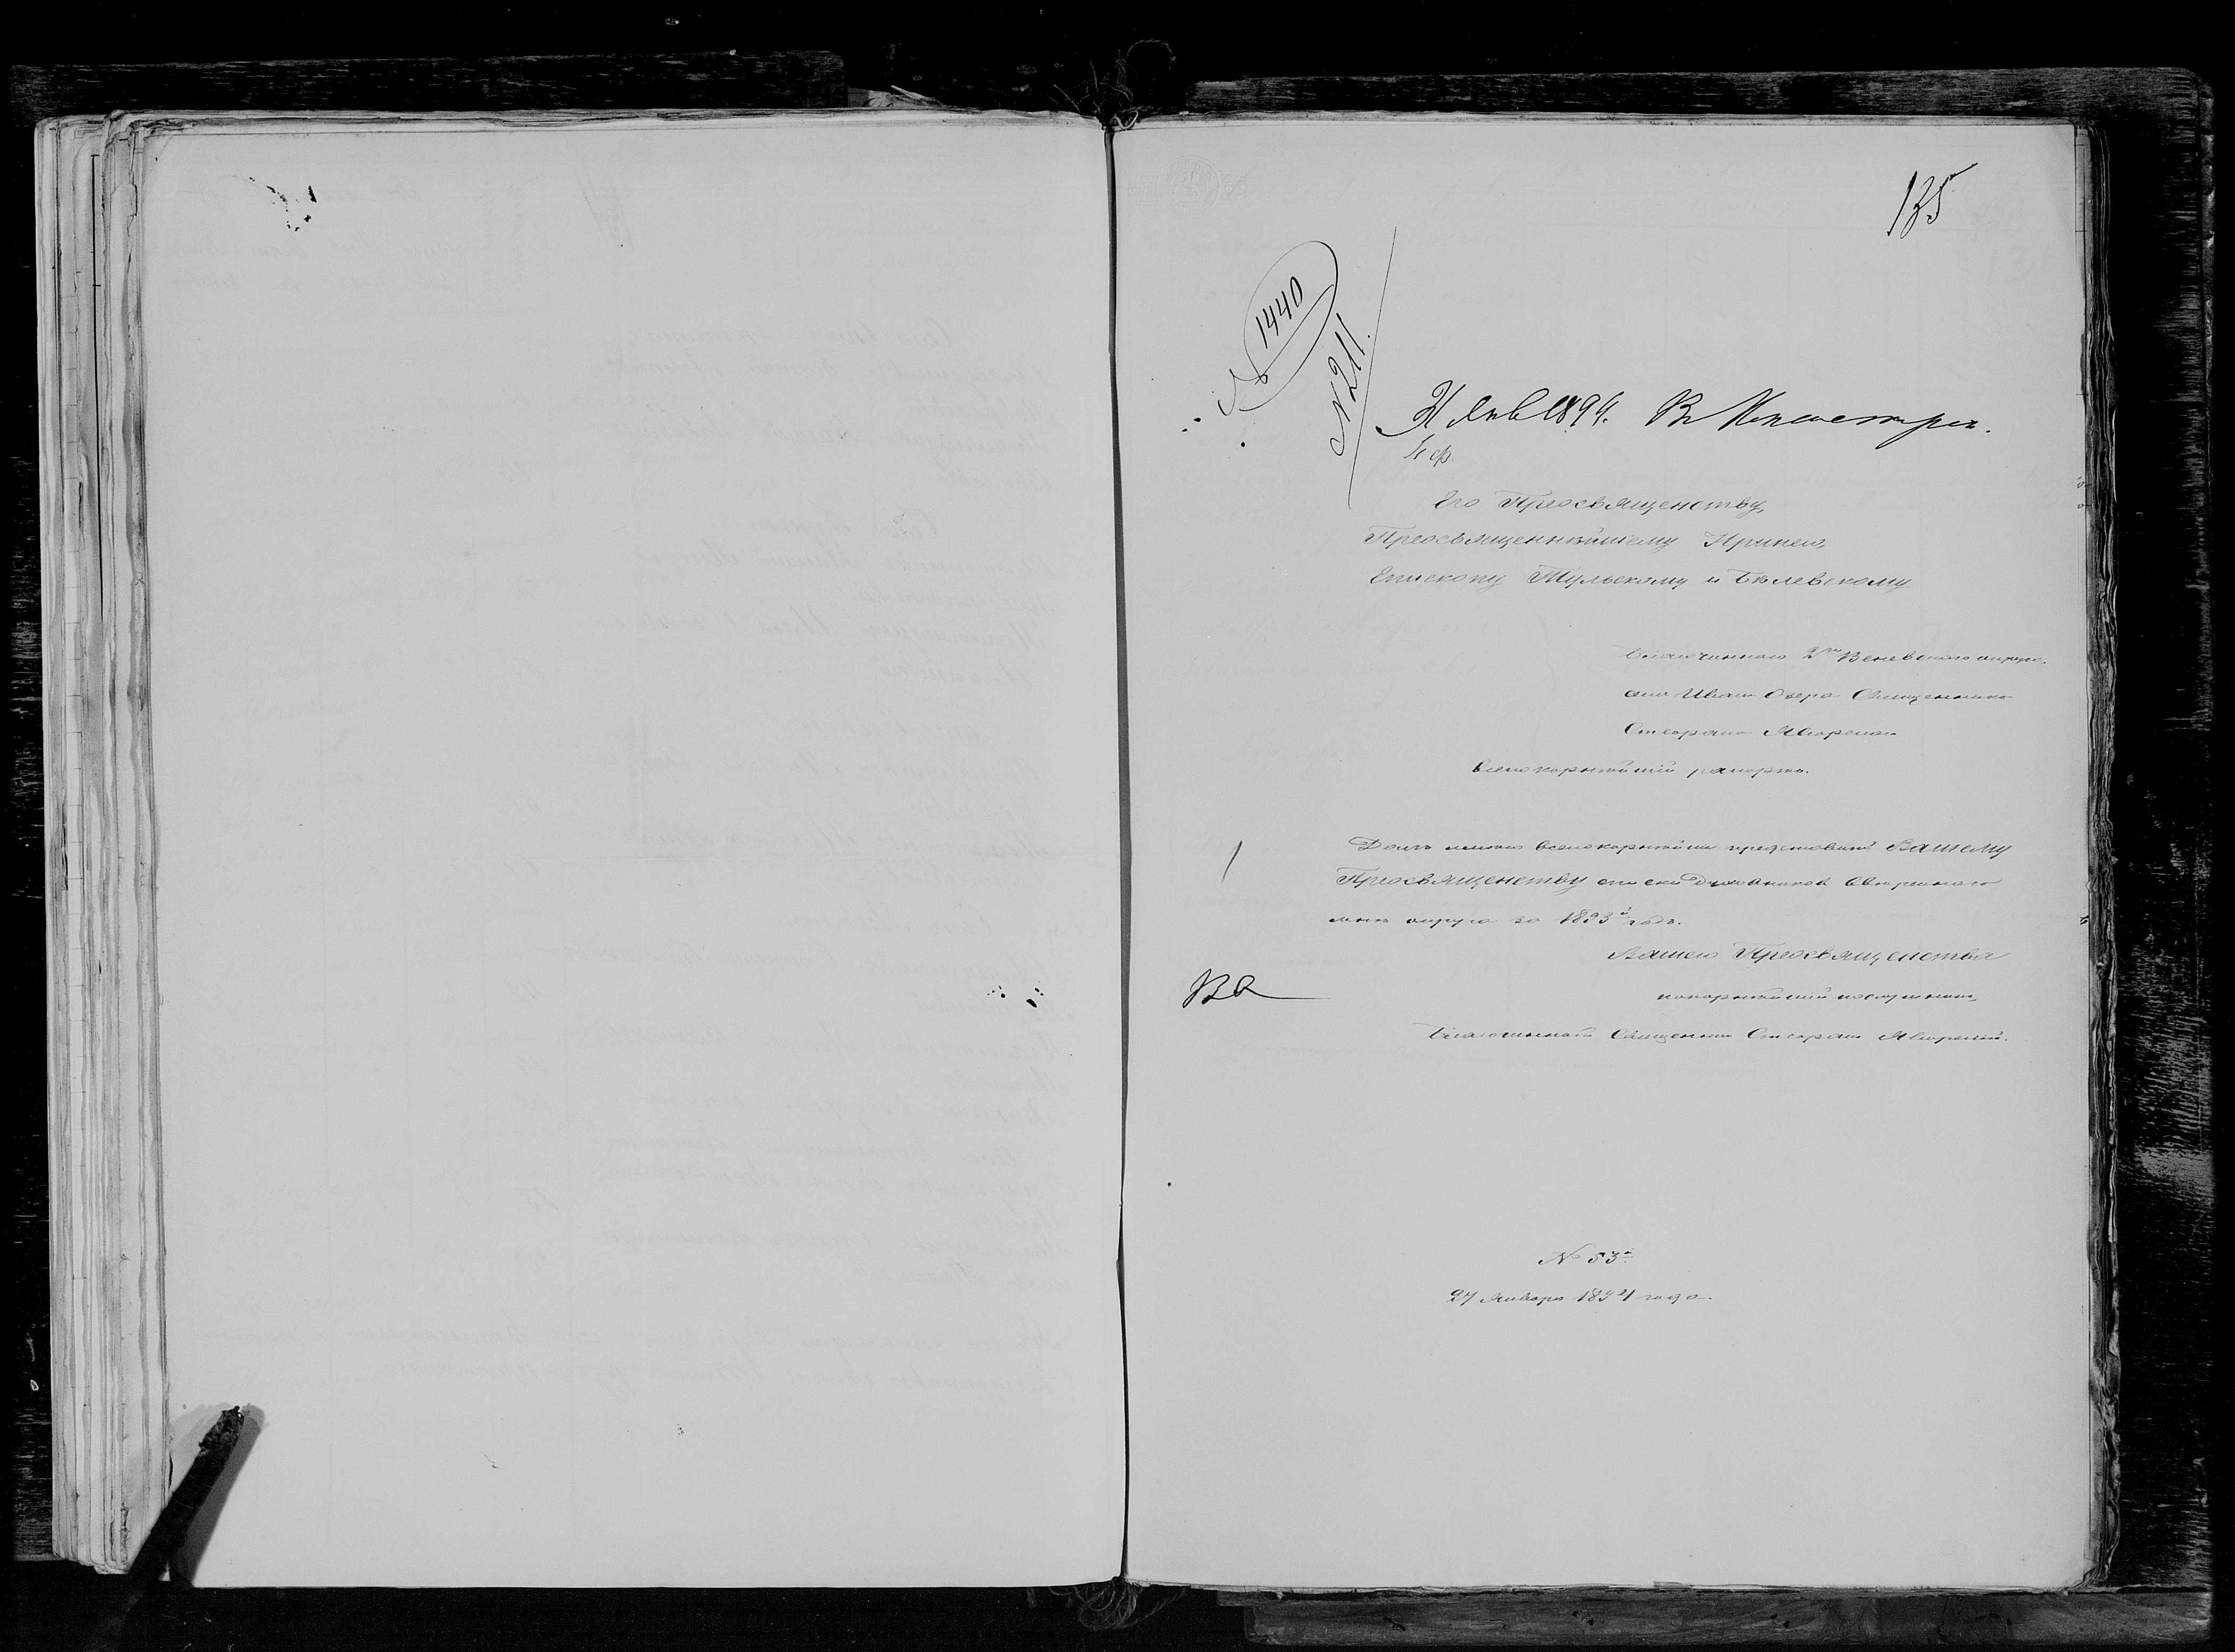 135
№ 1440
№ 211.
31 Янв 1894. Въ Консисторію.
4 ф.
Его Преосвященству,
Преосвященнѣйшему Иринею,
Епископу Тульскому и Бѣлевскому
Благочиннаго 2го Веневскаго округа,
села Иванъ Озера Священника
Стефана Яворскаго
всепокорнѣйшій рапортъ.
Долгъ имѣю всепокорнѣйше представить Вашему
Преосвященству списки духовниковъ
мнѣ округа за 1893й годъ.
Вашего Преосвященства
покорнѣйшій послушникъ,
Благочинный Священникъ Стефанъ Яворскій.
№ 53й
27 Января 1894 года.